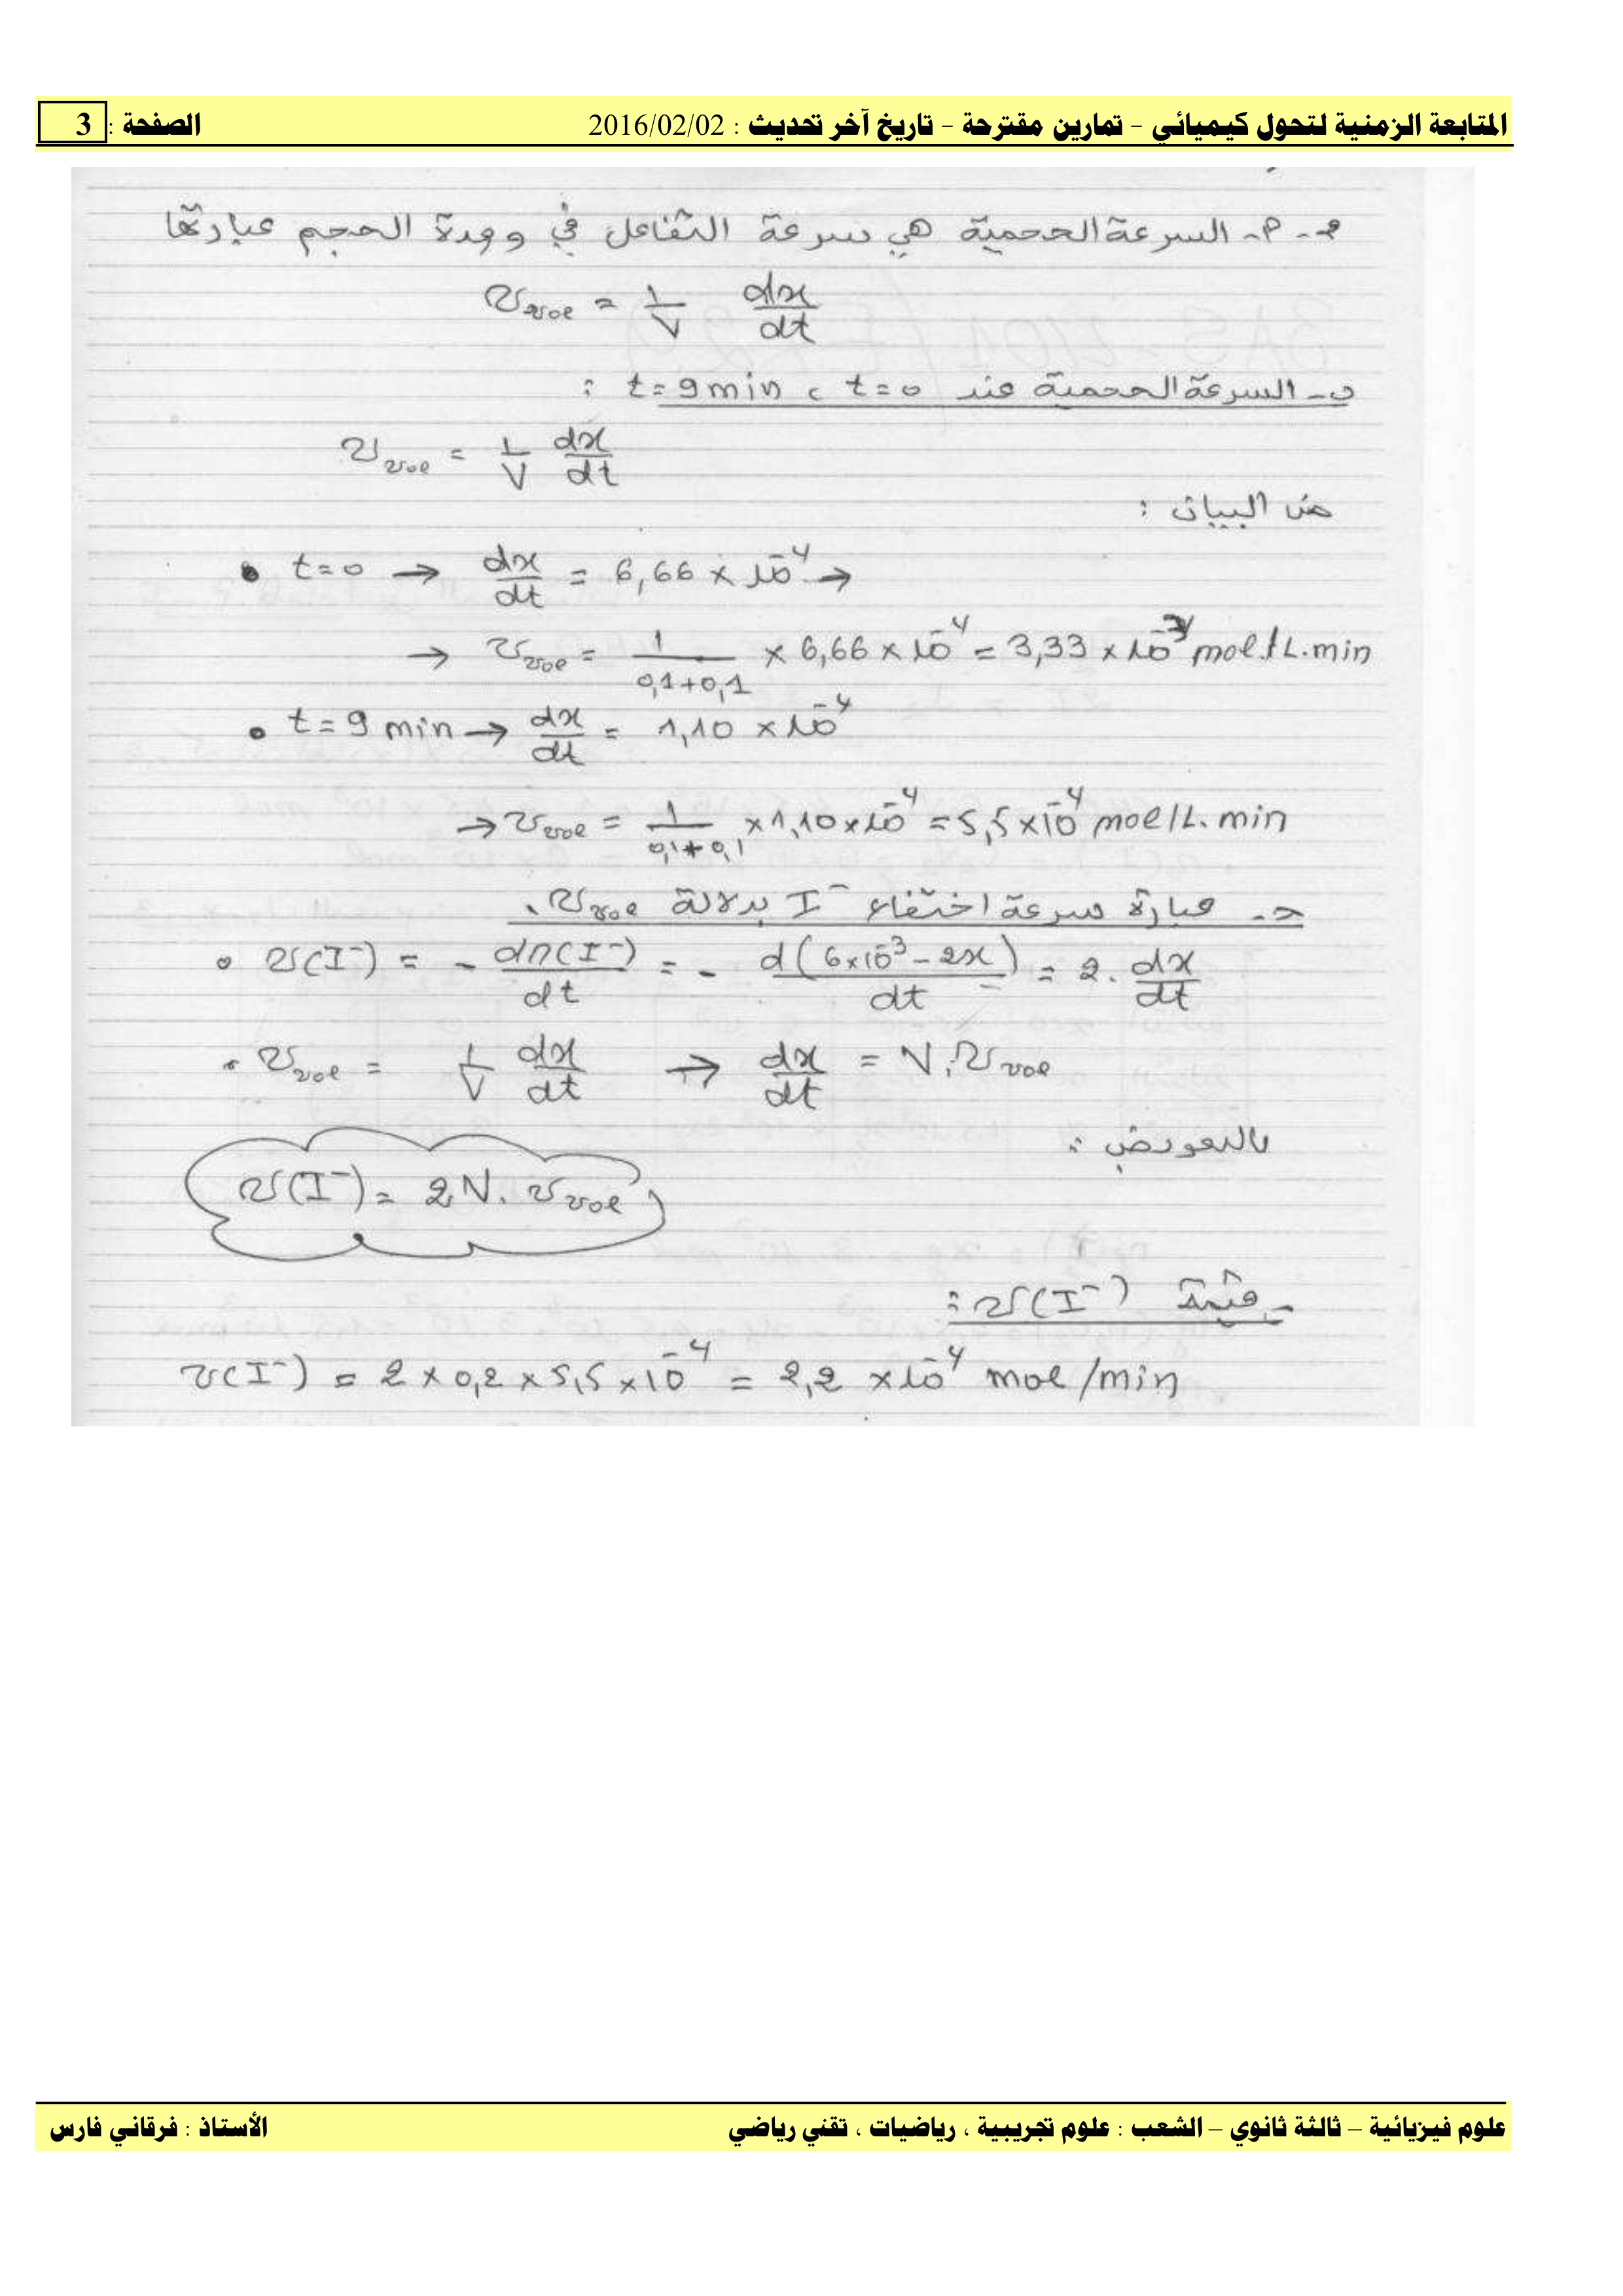 المتابعة الزمنية لتحول كيميائي – تمارين مقترحة – تاريخ آخر تحديث : 2016/02/02 الصفحة : 3
السرعة الحجمية هي سرعة التفاعل في وحدة الحجم عبارتها
v_vol = 1/V dx/dt
ب- السرعة الحجمية عند t=0 ، t=9min :
v_vol = 1/V dx/dt
من البيان :
• t=0 → dx/dt = 6,66 × 10⁻⁴ →
→ v_vol = 1/(0,1+0,1) × 6,66 × 10⁻⁴ = 3,33 × 10⁻³ mol/L.min
• t=9 min → dx/dt = 1,10 × 10⁻⁴
→ v_vol = 1/(0,1+0,1) × 1,10 × 10⁻⁴ = 5,5 × 10⁻⁴ mol/L.min
ج- عبارة سرعة اختفاء I⁻ بدلالة v_vol .
• v(I⁻) = - dn(I⁻)/dt = - d(6×10⁻³ - 2x)/dt = 2. dx/dt
• v_vol = 1/V dx/dt → dx/dt = V.v_vol
بالتعويض :
v(I⁻) = 2V. v_vol
- قيمة v(I⁻) :
v(I⁻) = 2 × 0,2 × 5,5 × 10⁻⁴ = 2,2 × 10⁻⁴ mol/min
علوم فيزيائية – ثالثة ثانوي – الشعب : علوم تجريبية ، رياضيات ، تقني رياضي الأستاذ : فرقاني فارس